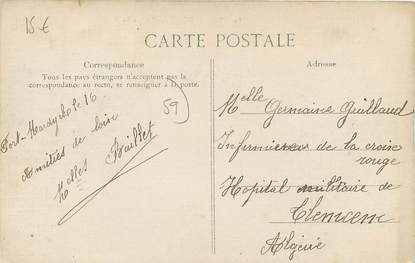 15 €
CARTE POSTALE
Correspondance
Tous les pays étrangers n'acceptent pas la
correspondance au recto, se renseigner à la poste.
Adresse
59
Fort-Mardyck le 16
Amitiés de loin
Melles Baillet
Melle Germaine Guilland
Infirmière de la croix
rouge
Hopital militaire de
Tlemcem
Algérie